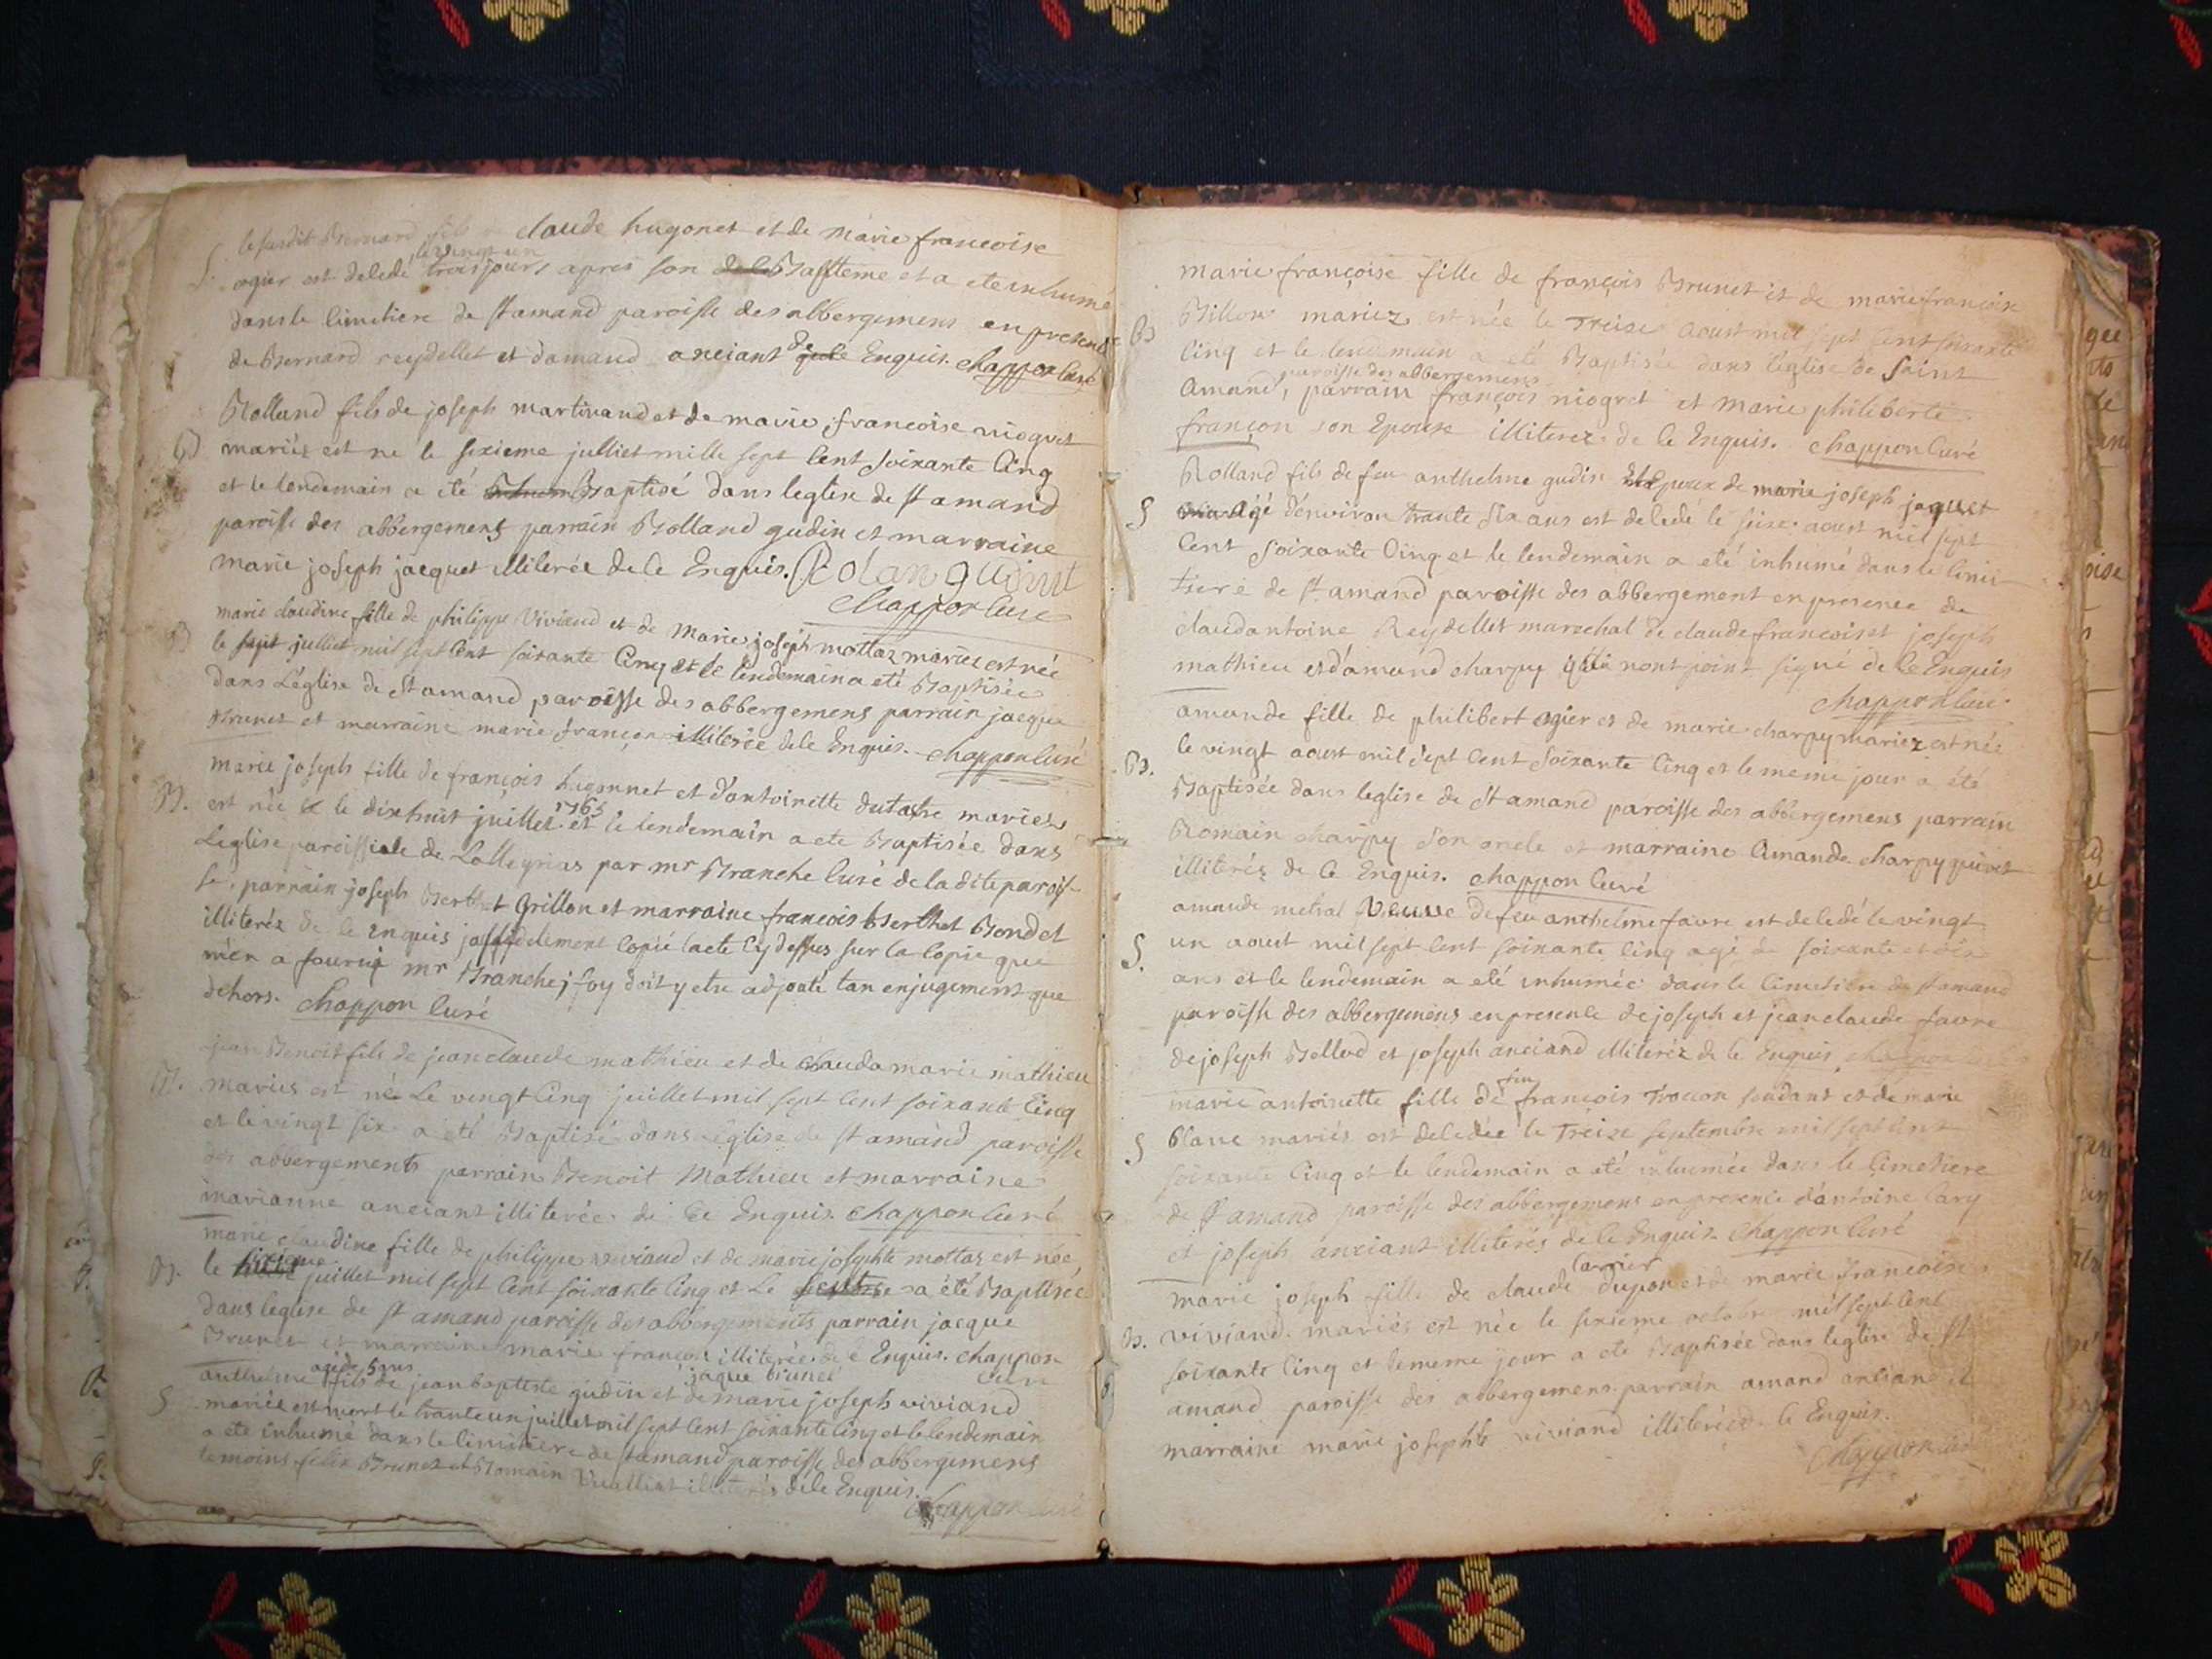 le susdit Bernard fils claude hugonet et de marie francoise
S. ogier est decedé le vingt un trois jours apres son Bapteme et a eté inhumé
dans le cimetiere de st amand paroisse des abbergemens en presence
de Bernard reydellet et damand anciant de ce Enquis. chappon curé
Rolland fils de joseph martinand et de marie francoise niogret
B mariés est ne le sixieme julliet mille sept cent soixante cinq
et le lendemain a eté Baptisé dans leglise de st amand
paroisse des abbergemens parrain Rolland gudin et marraine
marie joseph jacquet illiterée de ce Enquis. Rolan gudint
chappon curé
marie claudine fille de philippe viviand et de marie joseph mottaz mariez est née
B le sept julliet mil sept cent soixante cinq et le lendemain a eté Baptisée
dans L'église de st amand paroisse des abbergemens parrain jacque
Brunet et marraine marie françon illiterée de ce Enquis. chappon curé
marie joseph fille de françois hugonnet et d'antoinette dutatre mariés
B. est née le dixhuit juillet 1765 et le lendemain a ete Baptisée dans
L'église paroissiale de Lalleyrias par mr Branche curé de ladite parois-
se, parrain joseph Berthet Grillon et marraine francois Berthet Bondet
illiterés de ce enquis jay fidelement copié lacte cy dessus sur la copie que
m'en a fourni mr Branche, foy doit y etre adjouté tan en jugement que
dehors. chappon curé
jean Benoit fils de jean claude mathieu et de clauda marie mathieu
B. mariés est né Le vingt cinq juillet mil sept cent soixante cinq
et le vingt six a eté Baptisé dans église de st amand paroisse
des abbergements parrain Benoit Mathieu et marraine
marianne anciant illiterée de ce Enquis. chappon curé
marie claudine fille de philippe viviand et de marie josephte mottaz est née
B. le sixieme juillet mil sept cent soixante cinq et Le a été Baptisée
dans leglise de st amand paroisse des abbergements parrain jacque
Brunet et marraine marie françon illiterée de ce Enquis. chappon
jaque brunet curé
anthelme agé de 5 ans fils de jean baptiste gudin et de marie joseph viviand
S mariés est mort le trante un juillet mil sept cent soixante cinq et le lendemain
a ete inhumé dans le cimitiere de st amand paroisse des abbergemens
temoins felix Brunet et Romain Vuailliat illiterés de ce Enquis.
chappon curé
marie françoise fille de françois Brunet et de marie francoise
B Billon mariez est née le Treize aoust mil sept cent soixante
cinq et le lendemain a eté Baptisée dans l'église de saint
Amand, paroisse des abbergemens parrain françois niogret et marie philiberte
françon son Epouse illiterez de ce Enquis. chappon curé
Rolland fils de feu anthelme gudin Epoux de marie joseph jaquet
S agé d'environ trante six ans est decedé le seize aoust mil sept
cent soixante cinq et le lendemain a eté inhumé dans le cimi-
tiere de st amand paroisse des abbergement en presence de
claud antoine Reydellet marechal de claude francois et joseph
mathieu et d'amand charpy qui nont point signé de ce Enquis
chappon curé
amande fille de philibert ogier et de marie charpy mariez est née
B. le vingt aoust mil sept cent soixante cinq et le meme jour a été
Baptisée dans leglise de st amand paroisse des abbergemens parrain
Romain charpy son oncle et marraine Amande charpy
illiteréz de ce Enquis. chappon curé
amande metral Veuve de feu anthelme favre est decedé le vingt
S. un aout mil sept cent soixante cinq agé de soixante et dix
ans et le lendemain a eté inhumée dans le cimetiere de st amand
paroisse des abbergemens en presence de joseph et jean claude favre
de joseph Bellod et joseph anciand illiteréz de ce Enquis chappon
marie antoinette fille de feu françois Trocon et de marie
S Blanc mariés est decedée le Treize septembre mil sept cent
soixante cinq et le lendemain a été inhumée dans le cimetiere
de st amand paroisse des abbergemens en presence d'antoine Cary
et joseph anciant illiterés de ce Enquis. chappon curé
marie joseph fille de claude carrier dupon et de marie francoise
B. viviand mariés est née le sixieme octobre mil sept cent
soixante cinq et le meme jour a eté Baptisée dans leglise de st
amand paroisse des abbergemens parrain amand anciand et
marraine marie josephte viviand illiterés de ce Enquis.
chappon curé